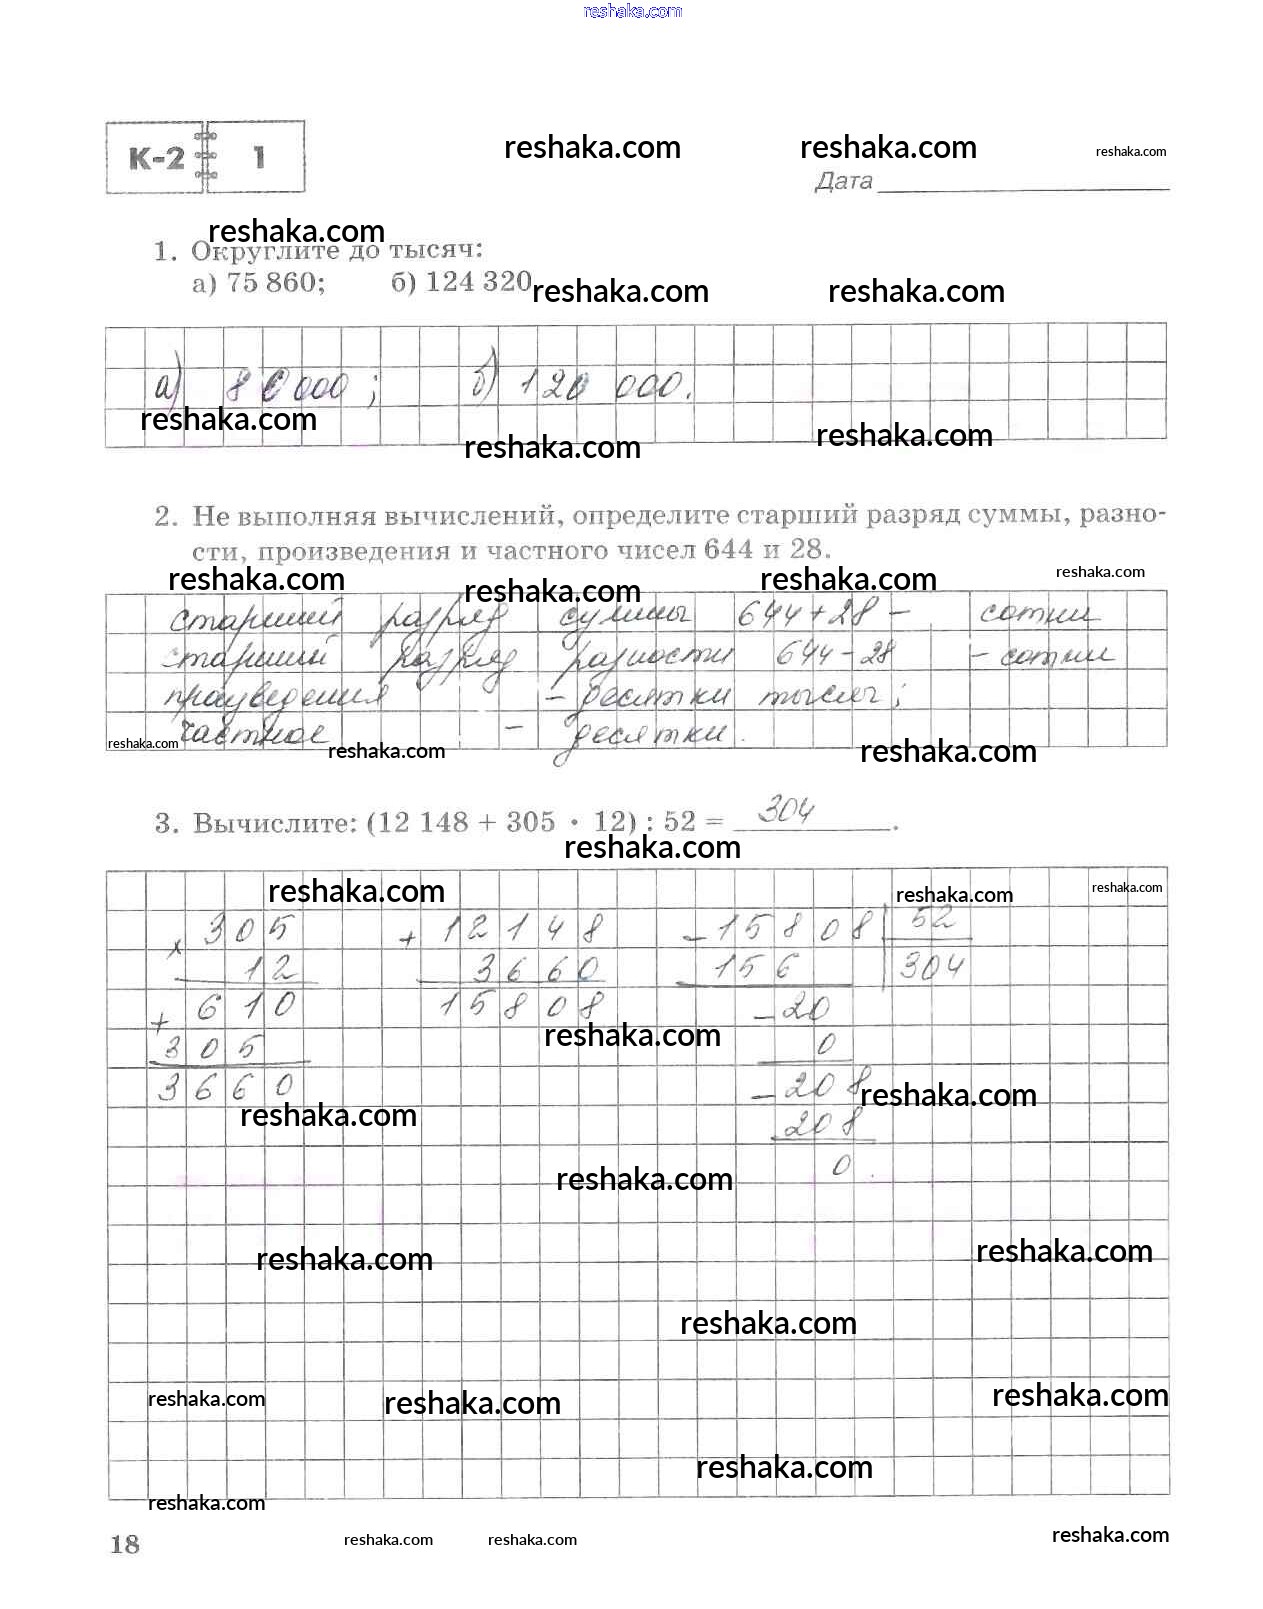 reshaka.com
К-2 1
reshaka.com reshaka.com reshaka.com
Дата
reshaka.com
1. Округлите до тысяч:
а) 75 860; б) 124 320
reshaka.com reshaka.com
а) 80 000; б) 120 000.
reshaka.com reshaka.com reshaka.com
2. Не выполняя вычислений, определите старший разряд суммы, разно-
сти, произведения и частного чисел 644 и 28.
reshaka.com reshaka.com reshaka.com reshaka.com
старший разряд суммы 644+28 - сотни
старший разряд разности 644-28 - сотни
произведения - десятки тысяч;
частное - десятки.
reshaka.com reshaka.com reshaka.com
3. Вычислите: (12 148 + 305 · 12) : 52 = 304.
reshaka.com
reshaka.com reshaka.com reshaka.com
× 305 + 12148 - 15808 52
12 3660 156 304
+ 610 15808 - 20
reshaka.com
305 0
3660 - 208
reshaka.com reshaka.com
208
0.
reshaka.com
reshaka.com reshaka.com
reshaka.com
reshaka.com reshaka.com reshaka.com
reshaka.com
reshaka.com
18 reshaka.com reshaka.com reshaka.com